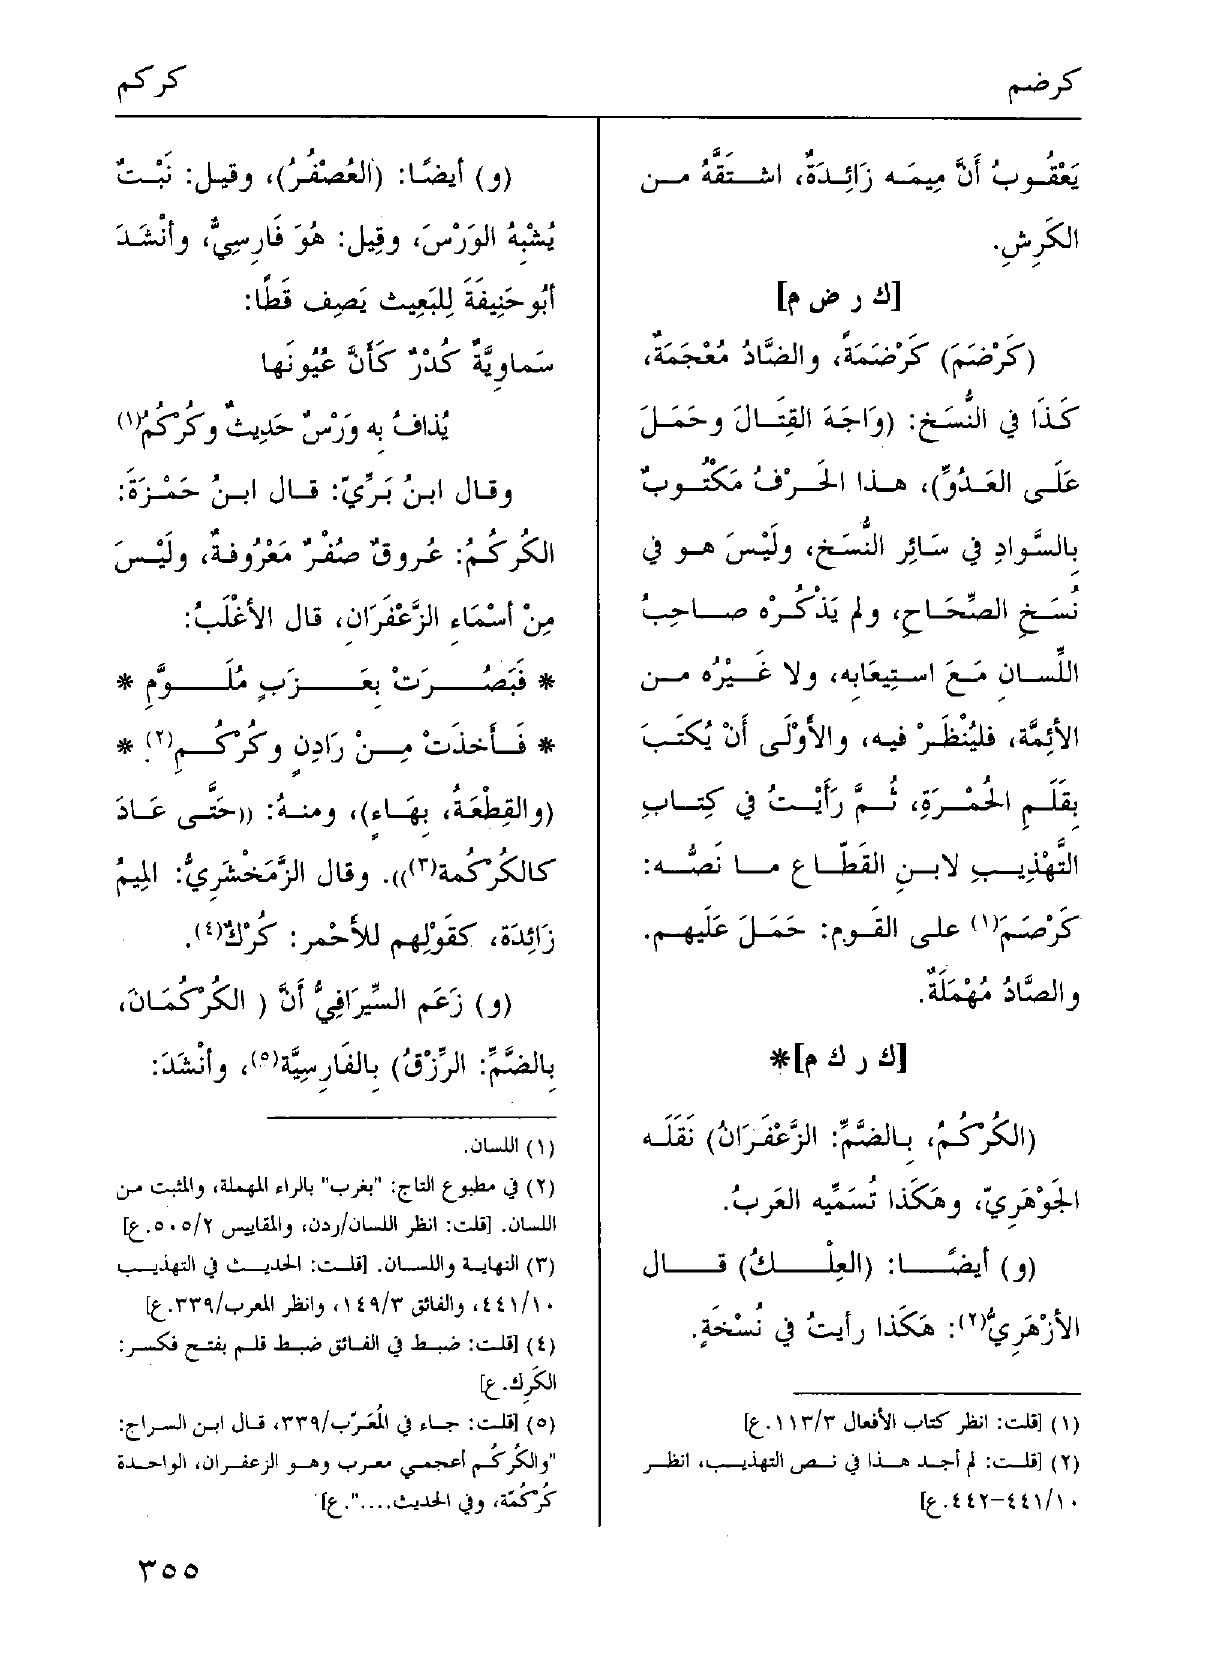 كرضم
كركم
يَعْقُوبُ أَنَّ مِيمَه زَائِدَةٌ، اشْتَقَّهُ من
الكَرِشِ.
[ك ر ض م]
(كَرْضَمَ) كَرْضَمَةً، والضَّادُ مُعْجَمَةٌ،
كَذَا في النُّسَخِ: (وَاجَهَ القِتَالَ وحَمَلَ
عَلَى العَدُوِّ)، هذا الحَرْفُ مَكْتُوبٌ
بِالسَّوادِ في سَائِر النُّسَخِ، ولَيْسَ هو في
نُسَخِ الصِّحَاحِ، ولم يَذْكُرْه صاحِبُ
اللِّسانِ مَعَ استِيعَابِه، ولا غَيْرُه من
الأَئِمَّة، فليُنْظَرْ فيه، والأَوْلَى أَنْ يُكْتَبَ
بقَلَمِ الحُمْرَةِ، ثُمَّ رَأَيْتُ في كِتابِ
التَّهْذِيبِ لابنِ القَطَّاع ما نَصُّه:
كَرْصَمَ(١) على القَومِ: حَمَلَ عَلَيهم.
والصَّادُ مُهْمَلَةٌ.
[ك ر ك م]*
(الكُرْكُمُ، بِالضَّمِّ: الزَّعْفَرَانُ) نَقَلَه
الجَوْهَرِيّ، وهَكَذَا تُسَمِّيه العَربُ.
(و) أيضًا: (العِلْكُ) قال
الأَزْهَرِيُّ(٢): هَكَذا رأيتُ في نُسْخَةٍ.
(١) [قلت: انظر كتاب الأفعال ١١٣/٣.ع]
(٢) [قلت: لم أجد هذا في نص التهذيب، انظر
٤٤١/١٠-٤٤٢.ع]
(و) أيضًا: (العُصْفُرُ)، وقيل: نَبْتٌ
يُشْبِهُ الوَرْسَ، وقِيل: هُوَ فَارِسِيٌّ، وأَنْشَدَ
أبُو حَنِيفَةَ لِلبَعِيث يَصِف قَطًا:
سَماوِيَّةٌ كُدْرٌ كَأَنَّ عُيُونَها
يُذافُ به وَرْسٌ حَدِيثٌ وكُرْكُمُ(١)
وقال ابنُ بَرِّيّ: قال ابنُ حَمْزَةَ:
الكُرْكُمُ: عُروقٌ صُفْرٌ مَعْرُوفةٌ، ولَيْسَ
مِنْ أَسْمَاءِ الزَّعْفَرَانِ، قال الأَغْلَبُ:
* فَبَصُرَتْ بعَزَبٍ مُلَوَّمِ *
* فَأَخذَتْ مِنْ رَادِنٍ وكُرْكُمِ(٢) *
(والقِطْعَةُ، بِهَاءٍ)، ومنهُ: ((حَتَّى عَادَ
كالكُرْكُمة(٣))). وقال الزَّمَخْشَرِيُّ: المِيمُ
زَائِدَة، كقَولِهم للأَحْمر: كُرْكٌ(٤).
(و) زَعَم السِّيرَافِيُّ أَنَّ ( الكُرْكُمَانَ،
بِالضَّمِّ: الرِّزْقُ) بِالفَارِسِيَّة(٥)، وأَنْشَدَ:
(١) اللسان.
(٢) في مطبوع التاج: "بغرب" بالراء المهملة، والمثبت من
اللسان. [قلت: انظر اللسان/ردن، والمقاييس ٥٠٥/٢.ع]
(٣) النهاية واللسان. [قلت: الحديث في التهذيب
٤٤١/١٠، والفائق ١٤٩/٣، وانظر المعرب/٣٣٩.ع]
(٤) [قلت: ضبط في الفائق ضبط قلم بفتح فكسر:
الكَرِك.ع]
(٥) [قلت: جاء في المُعَرّب/٣٣٩، قال ابن السراج:
"والكُرْكُم أعجمي معرب وهو الزعفران، الواحدة
كُرْكُمَة، وفي الحديث....".ع]
٣٥٥